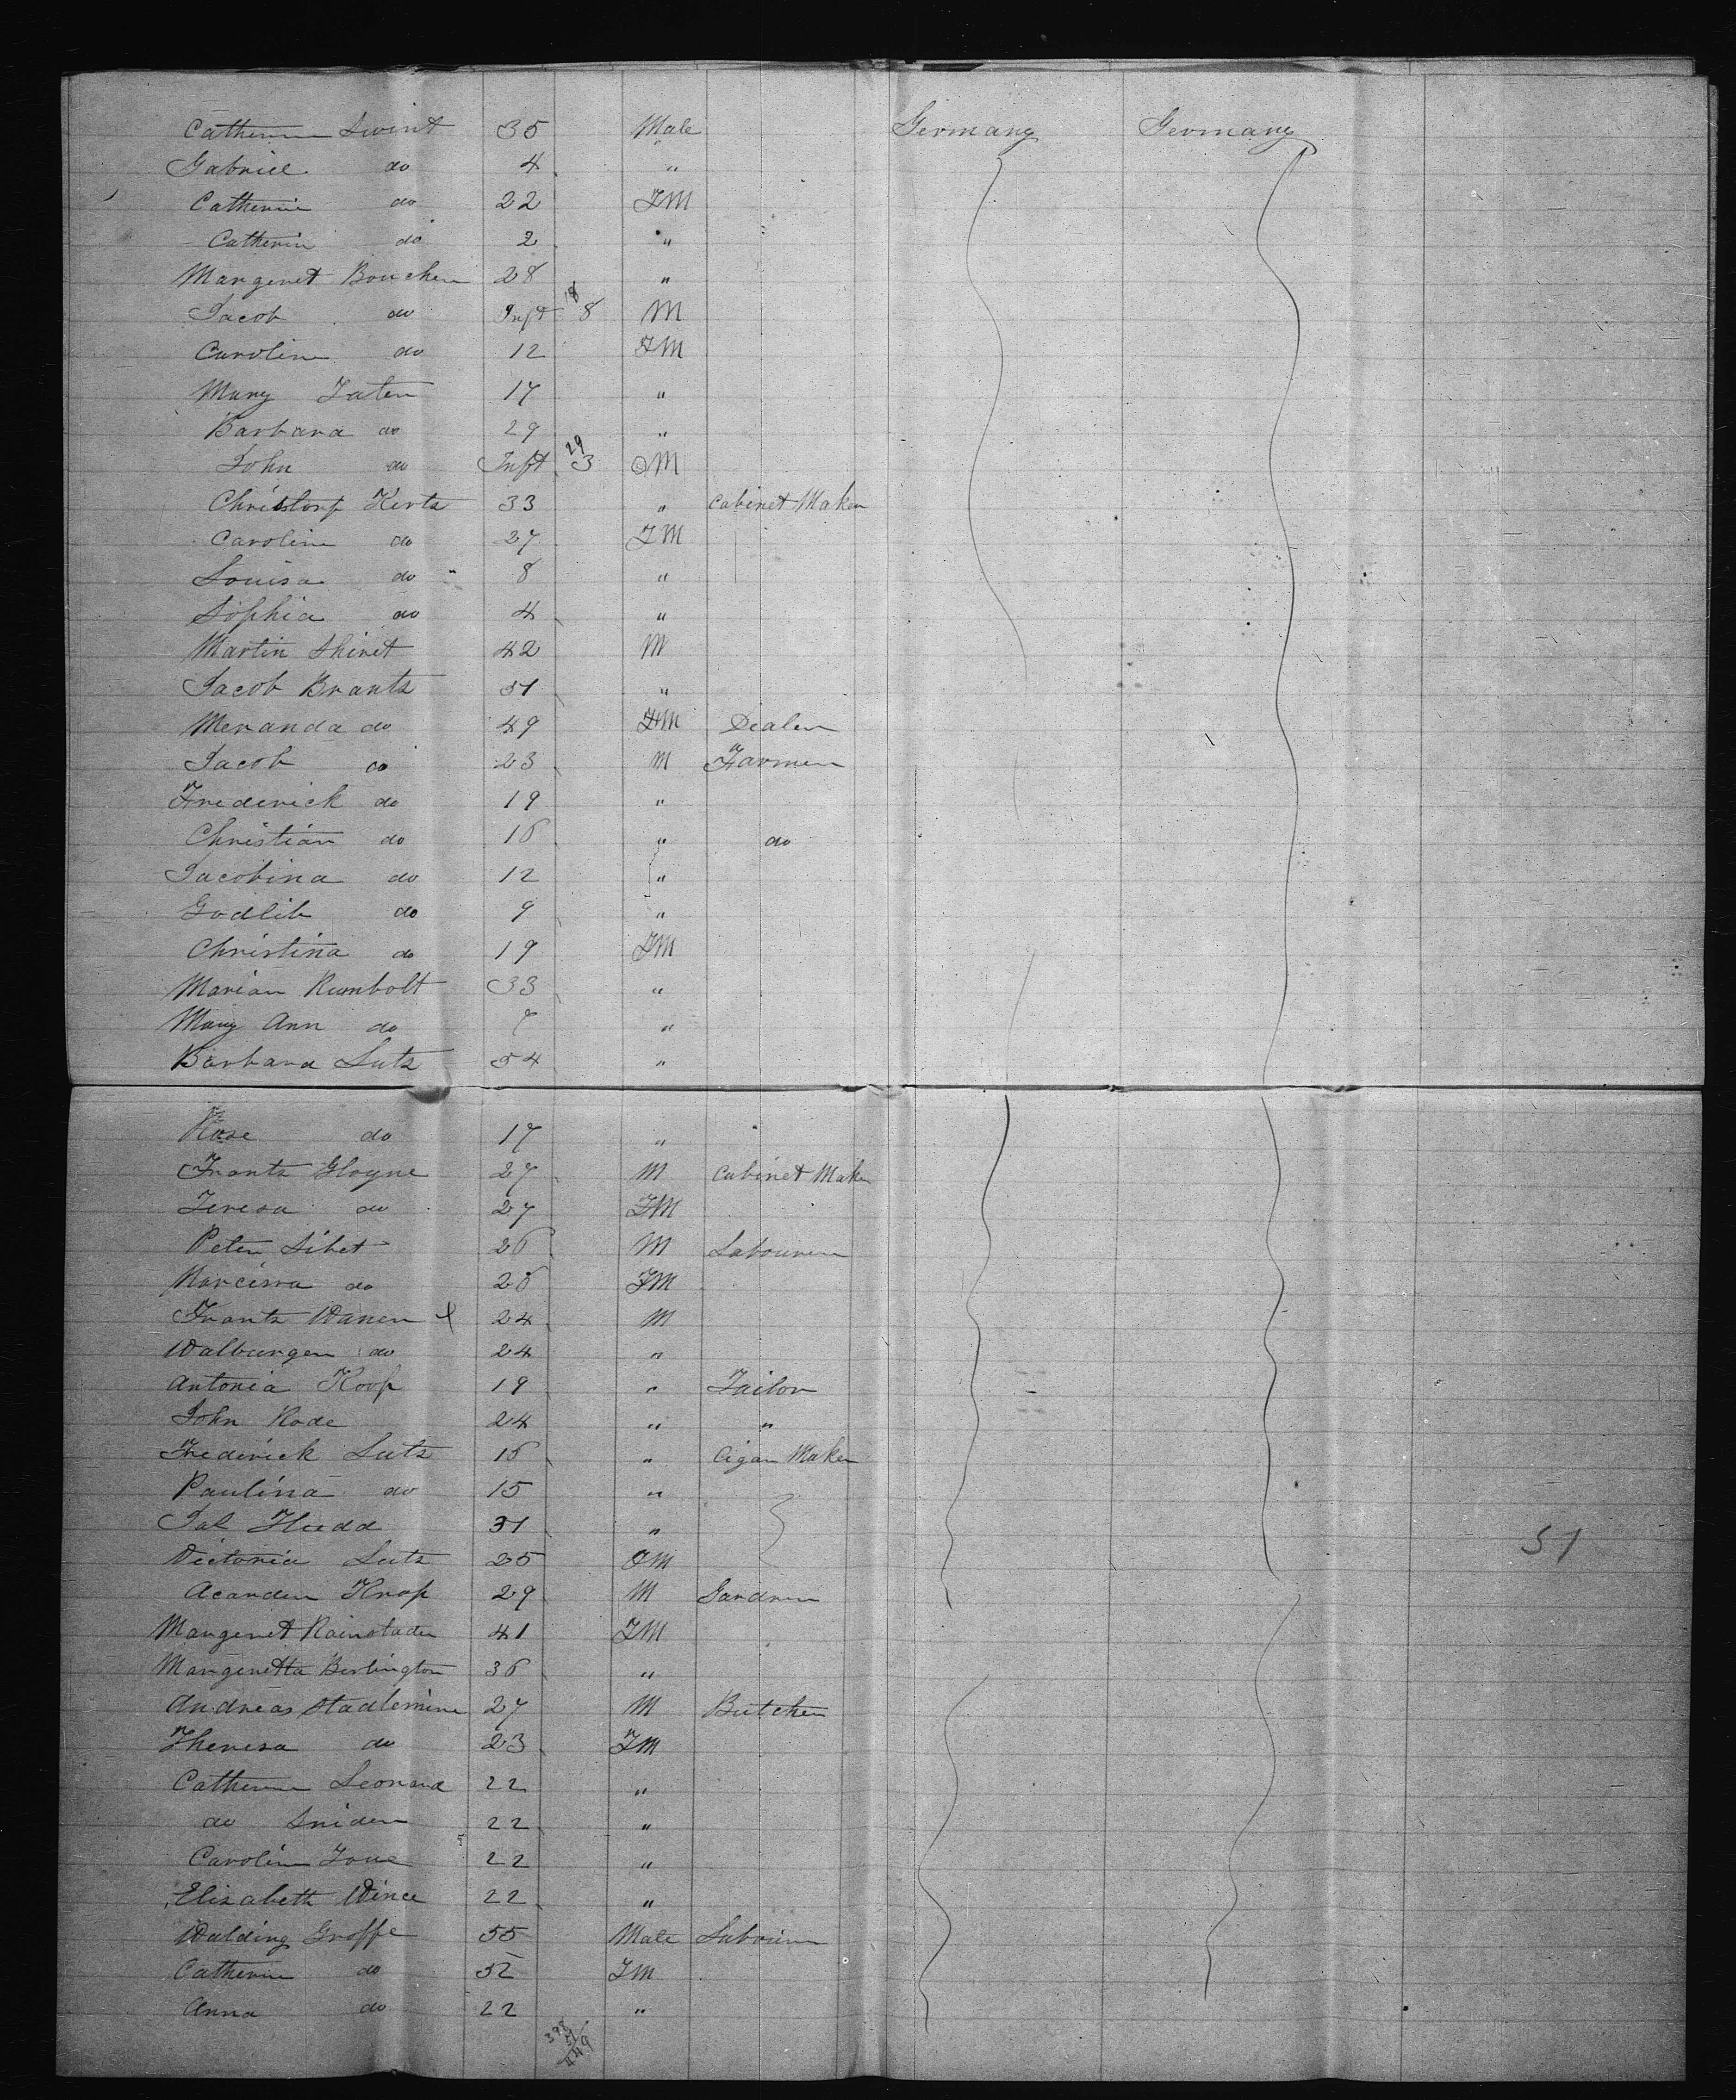 Catherine Swint 35 Male Germany Germany
Gabriel do 4 "
Catherine do 22 FM
Catherin do 2 "
Margeret Boucher 28 "
Jacob do Inft 8 M
Caroline do 12 FM
Mary 17 "
Barbara do 29 "
John do Inft 3 M
Christorf Kertz 33 " Cabinet Maker
Caroline do 37 FM
Louisa do 8 "
Sophia do 4 "
Martin Shiret 42 M
Jacob Brantz 51 "
Meranda do 49 FM Dealer
Jacob do 23 M Farmer
Frederick do 19 "
Christian do 16 " do
Jacobina do 12 "
Godlib do 9 "
Christina do 19 FM
Marian Rumbolt 33 "
Mary Ann do 7 "
Barbara Lutz 54 "
Rose do 17 "
Frantz Gloyne 27 M Cabinet Maker
Teresa do 27 FM
Peter Sibet 26 M Labourer
Narcissa do 26 FM
Frantz Waner 24 M
Walburger do 24 "
Antonia Koop 19 " Tailor
John Rode 24 " "
Frederick Lutz 16 " Cigar Maker
Paulina do 15 "
Hudd 31 "
Victoria Lutz 25 M
51
Acarden Knop 29 M Gardner
Margeret Rainstader 41 FM
Margeretta Berlington 36 "
Andreas Stadlemire 27 M Butcher
Theresa do 23 FM
Catherine Leonard 22 "
do Snider 22 "
Caroline 22 "
Elisabeth Wince 22 "
Walding Groffe 55 Male Labourer
Catherine do 52 FM
Anna do 22 "
398
51
449